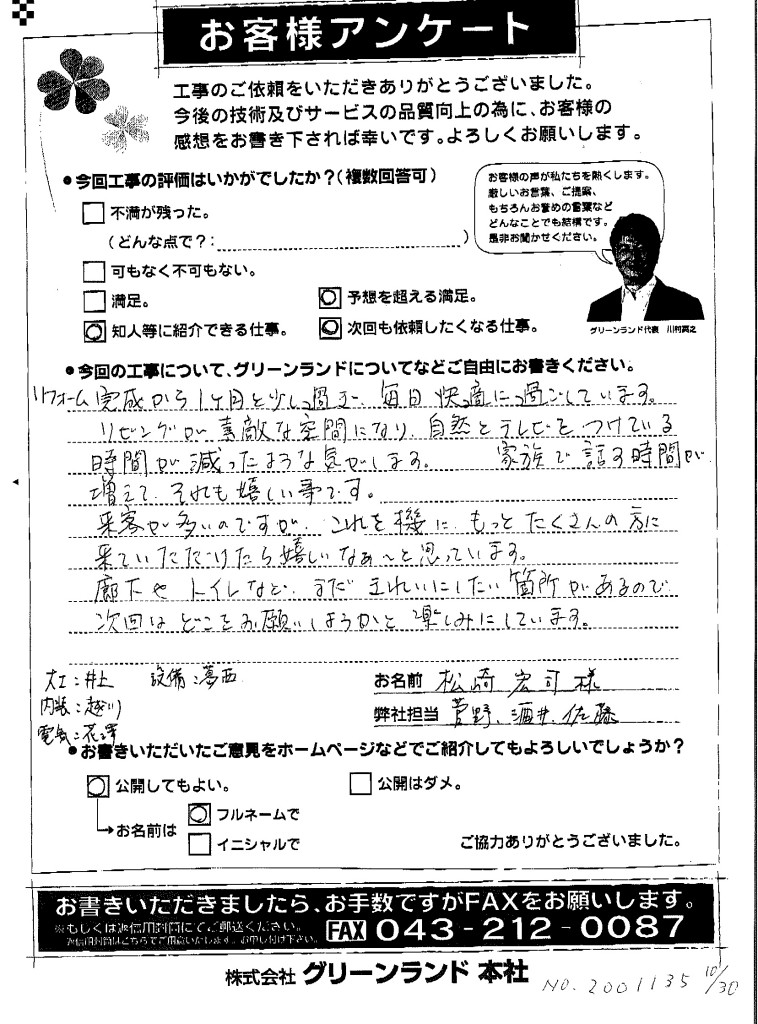 お客様アンケート
工事のご依頼をいただきありがとうございました。
今後の技術及びサービスの品質向上の為に、お客様の
感想をお書き下されば幸いです。よろしくお願いします。
●今回工事の評価はいかがでしたか?(複数回答可)
お客様の声が私たちを熱くします。
厳しいお言葉、ご提案、
もちろんお誉めの言葉など
どんなことでも結構です。
是非お聞かせください。
不満が残った。
(どんな点で?: )
可もなく不可もない。
満足。
予想を超える満足。
知人等に紹介できる仕事。
次回も依頼したくなる仕事。
グリーンランド代表 川村真之
●今回の工事について、グリーンランドについてなどご自由にお書きください。
リフォーム完成から1ヶ月と少し過ぎ、毎日快適に過ごしています。
リビングが素敵な空間になり、自然とテレビをつけている
時間が減ったような気がします。 家族で話す時間が
増えて、それも嬉しい事です。
来客が多いのですが、これを機に、もっとたくさんの方に
来ていただけたら嬉しいなぁ〜と思っています。
廊下やトイレなど、まだきれいにしたい箇所があるので
次回はどこをお願いしようかと楽しみにしています。
大工:井上 設備:葛西
内装:越川
電気:花澤
お名前 松崎宏司様
弊社担当 菅野、酒井、佐藤
●お書きいただいたご意見をホームページなどでご紹介してもよろしいでしょうか?
公開してもよい。
公開はダメ。
お名前は
フルネームで
イニシャルで
ご協力ありがとうございました。
お書きいただきましたら、お手数ですがFAXをお願いします。
※もしくは返信用封筒にてご郵送ください。
返信用封筒はこちらでご用意いたします。お申し付け下さい。
FAX 043-212-0087
株式会社 グリーンランド 本社
NO. 2001135 10/30